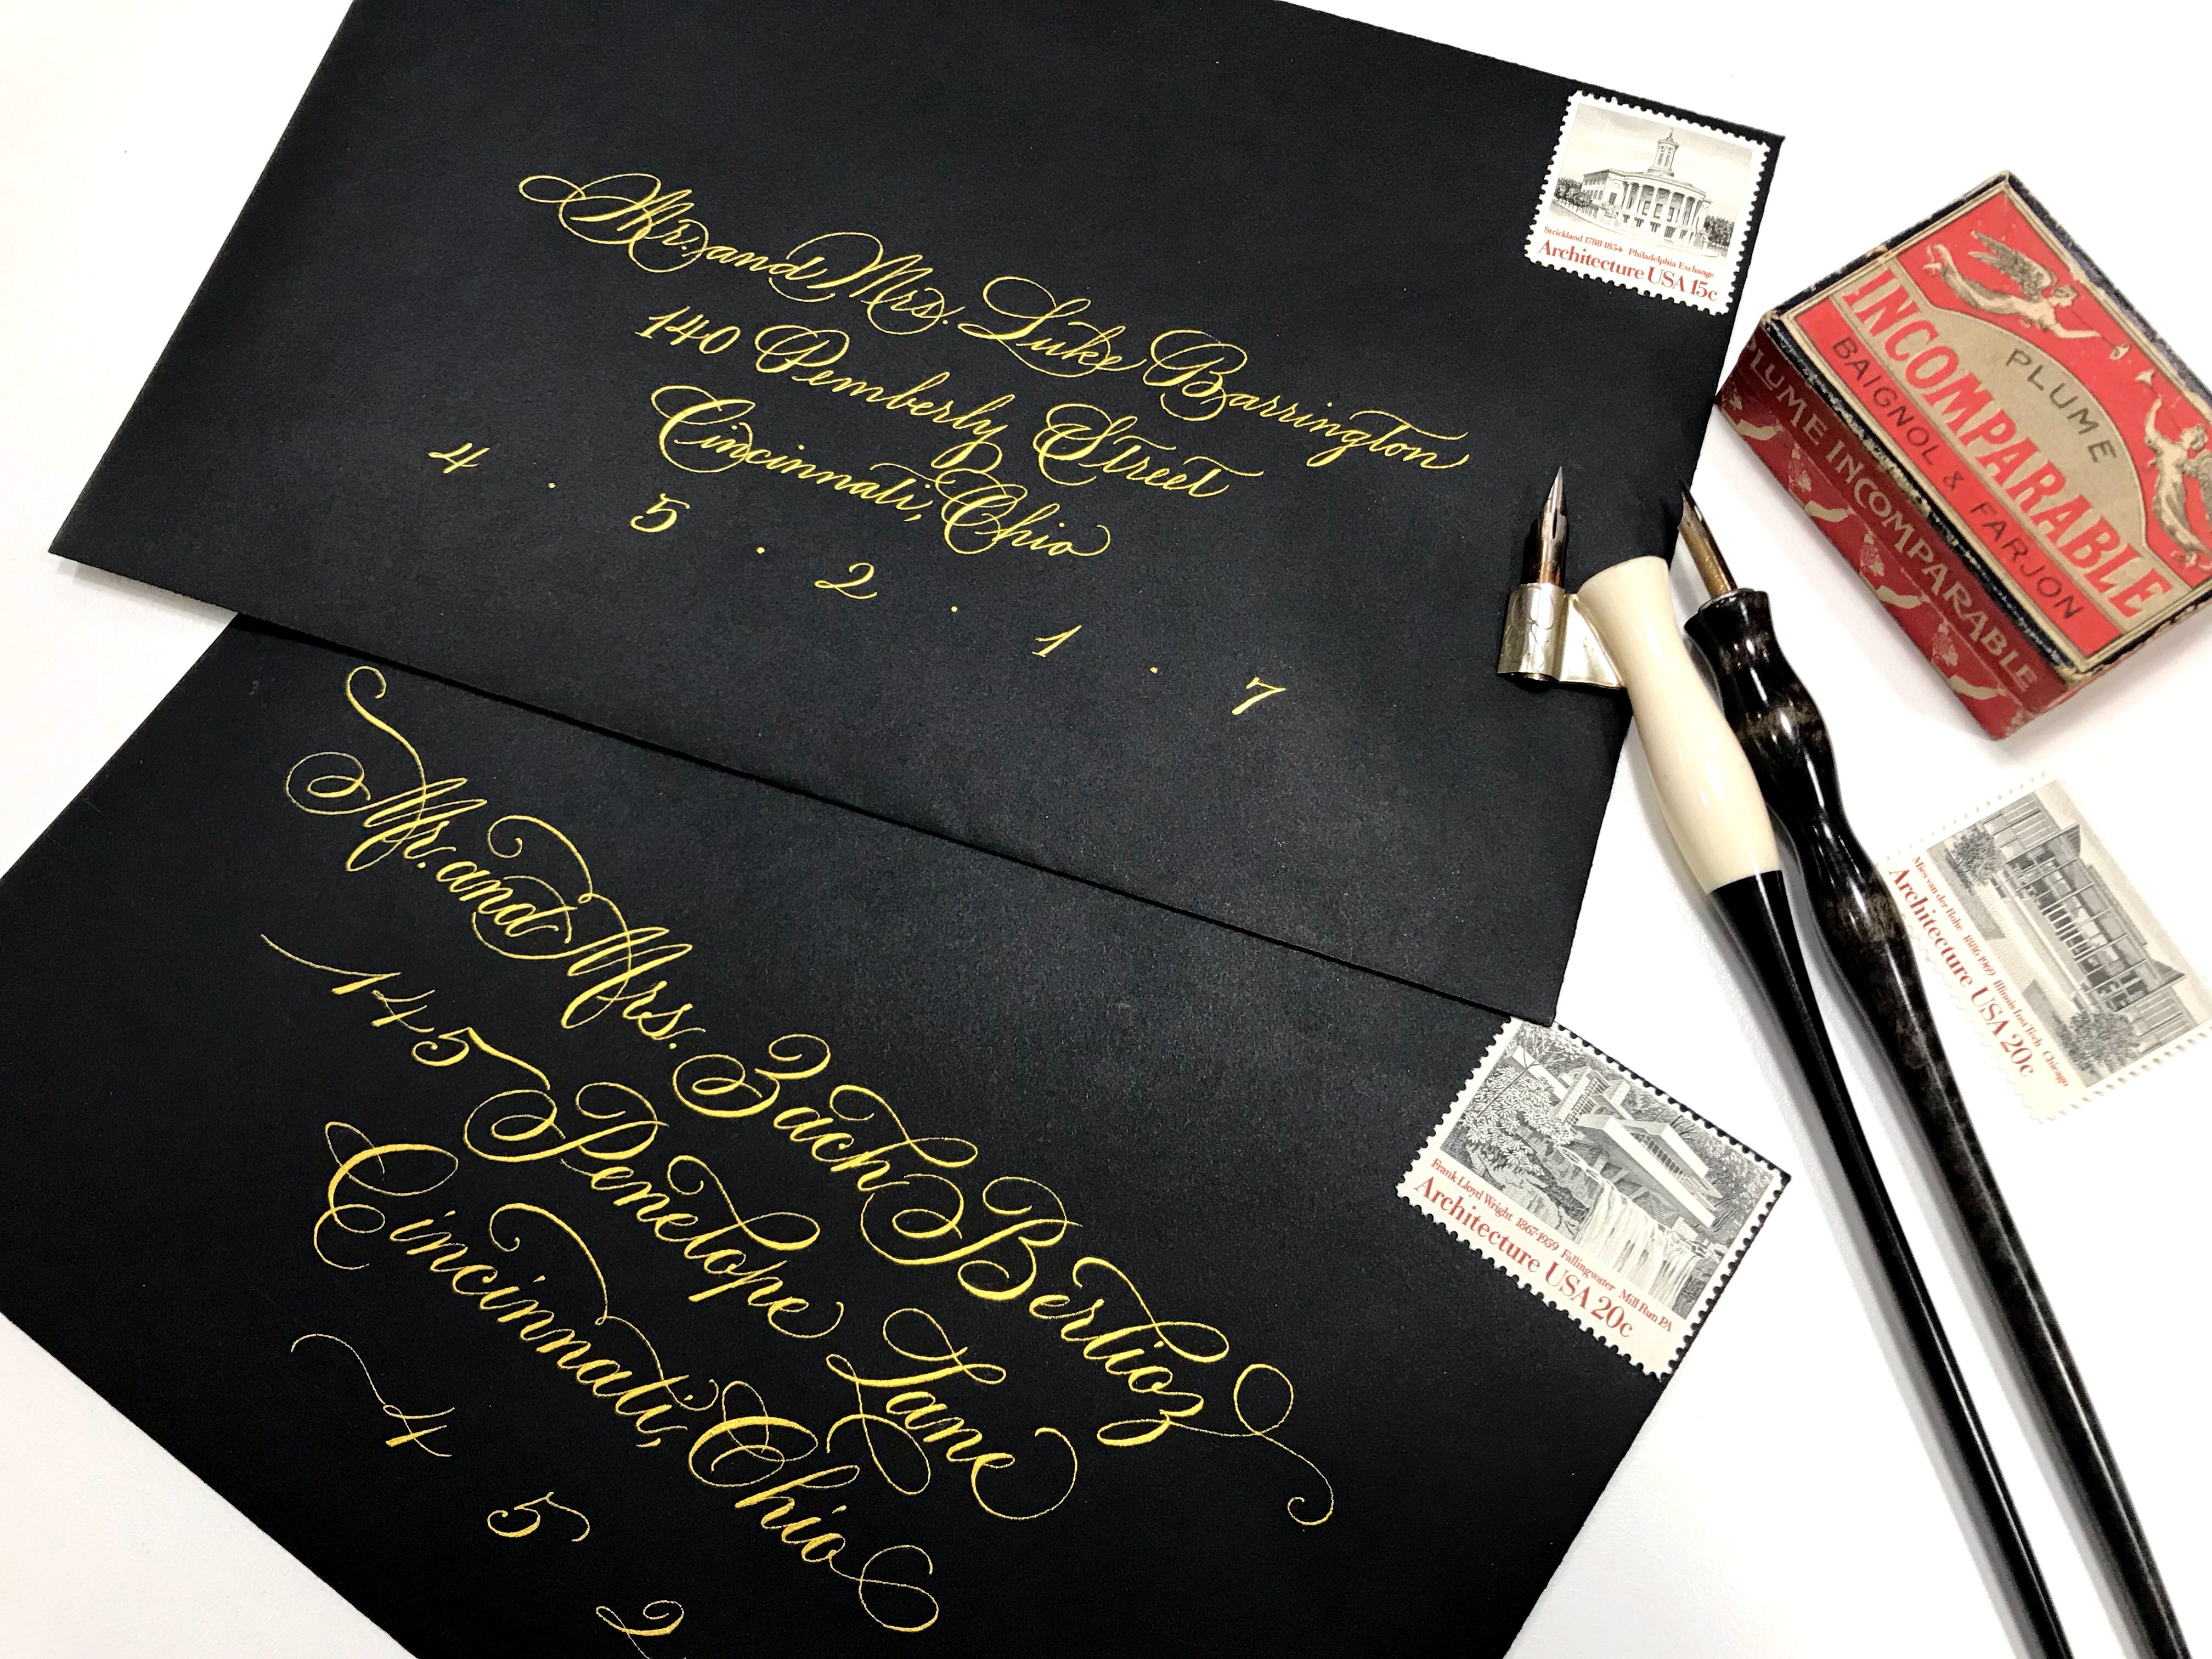 Mr. and Mrs. Luke Barrington
140 Pemberly Street
Cincinnati, Ohio
4 . 5 . 2 . 1 . 7
Strickland 1788-1854 Philadelphia Exchange
Architecture USA 15c
Mr. and Mrs. Zach Berlioz
145 Penelope Lane
Cincinnati, Ohio
4 5 2
Frank Lloyd Wright 1867-1959 Fallingwater Mill Run PA
Architecture USA 20c
PLUME
INCOMPARABLE
BAIGNOL & FARJON
PLUME INCOMPARABLE
Mies van der Rohe 1886-1969 Illinois Inst Tech Chicago
Architecture USA 20c